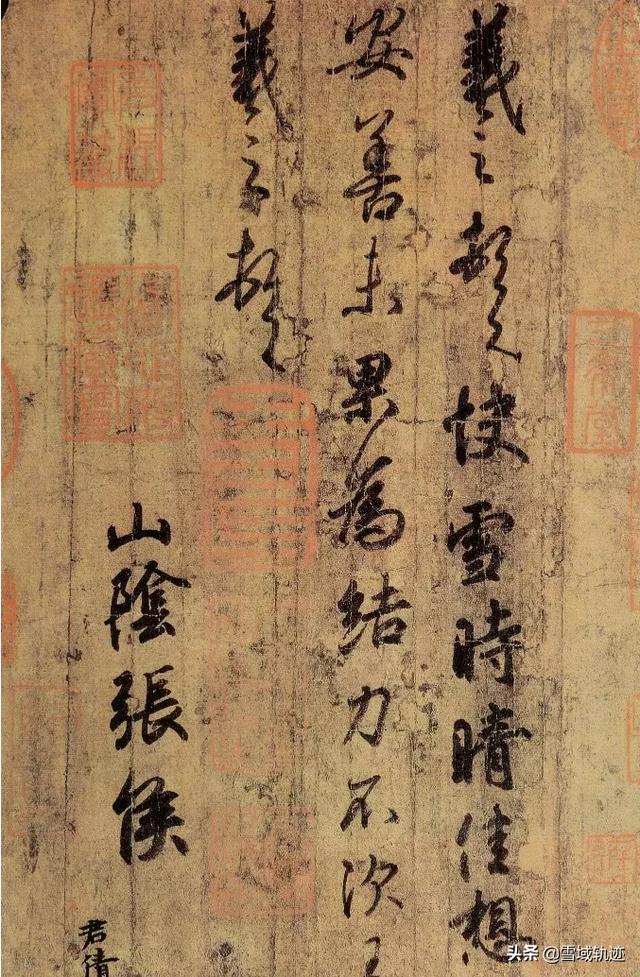 羲之頓首快雪時晴佳想
安善未果為結力不次王
羲之頓首
山陰張侯
君倩
头条 @雪域轨迹